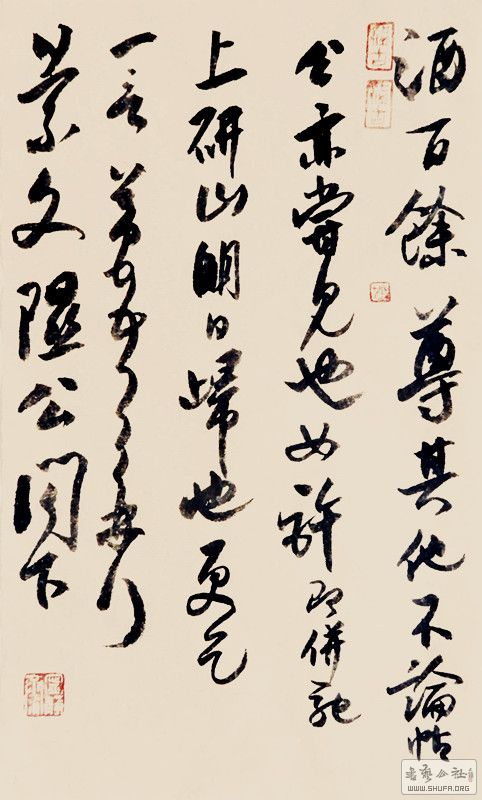 酒百餘尊其他不論帖
公亦嘗見也如許即併馳
上研山明日歸也更乞
一言芾頓首再拜
景文隰公閤下
書藝公社
WWW.SHUFA.ORG